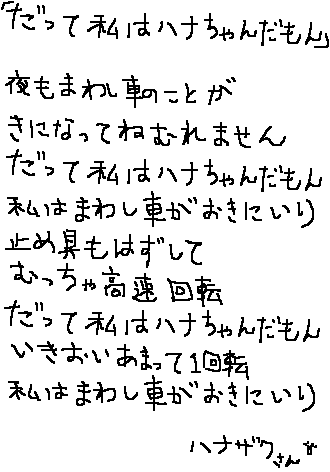 「だって私はハナちゃんだもん」
夜もまわし車のことが
きになってねむれません
だって私はハナちゃんだもん
私はまわし車がおきにいり
止め具もはずして
むっちゃ高速回転
だって私はハナちゃんだもん
いきおいあまって1回転
私はまわし車がおきにいり
ハナザワさん